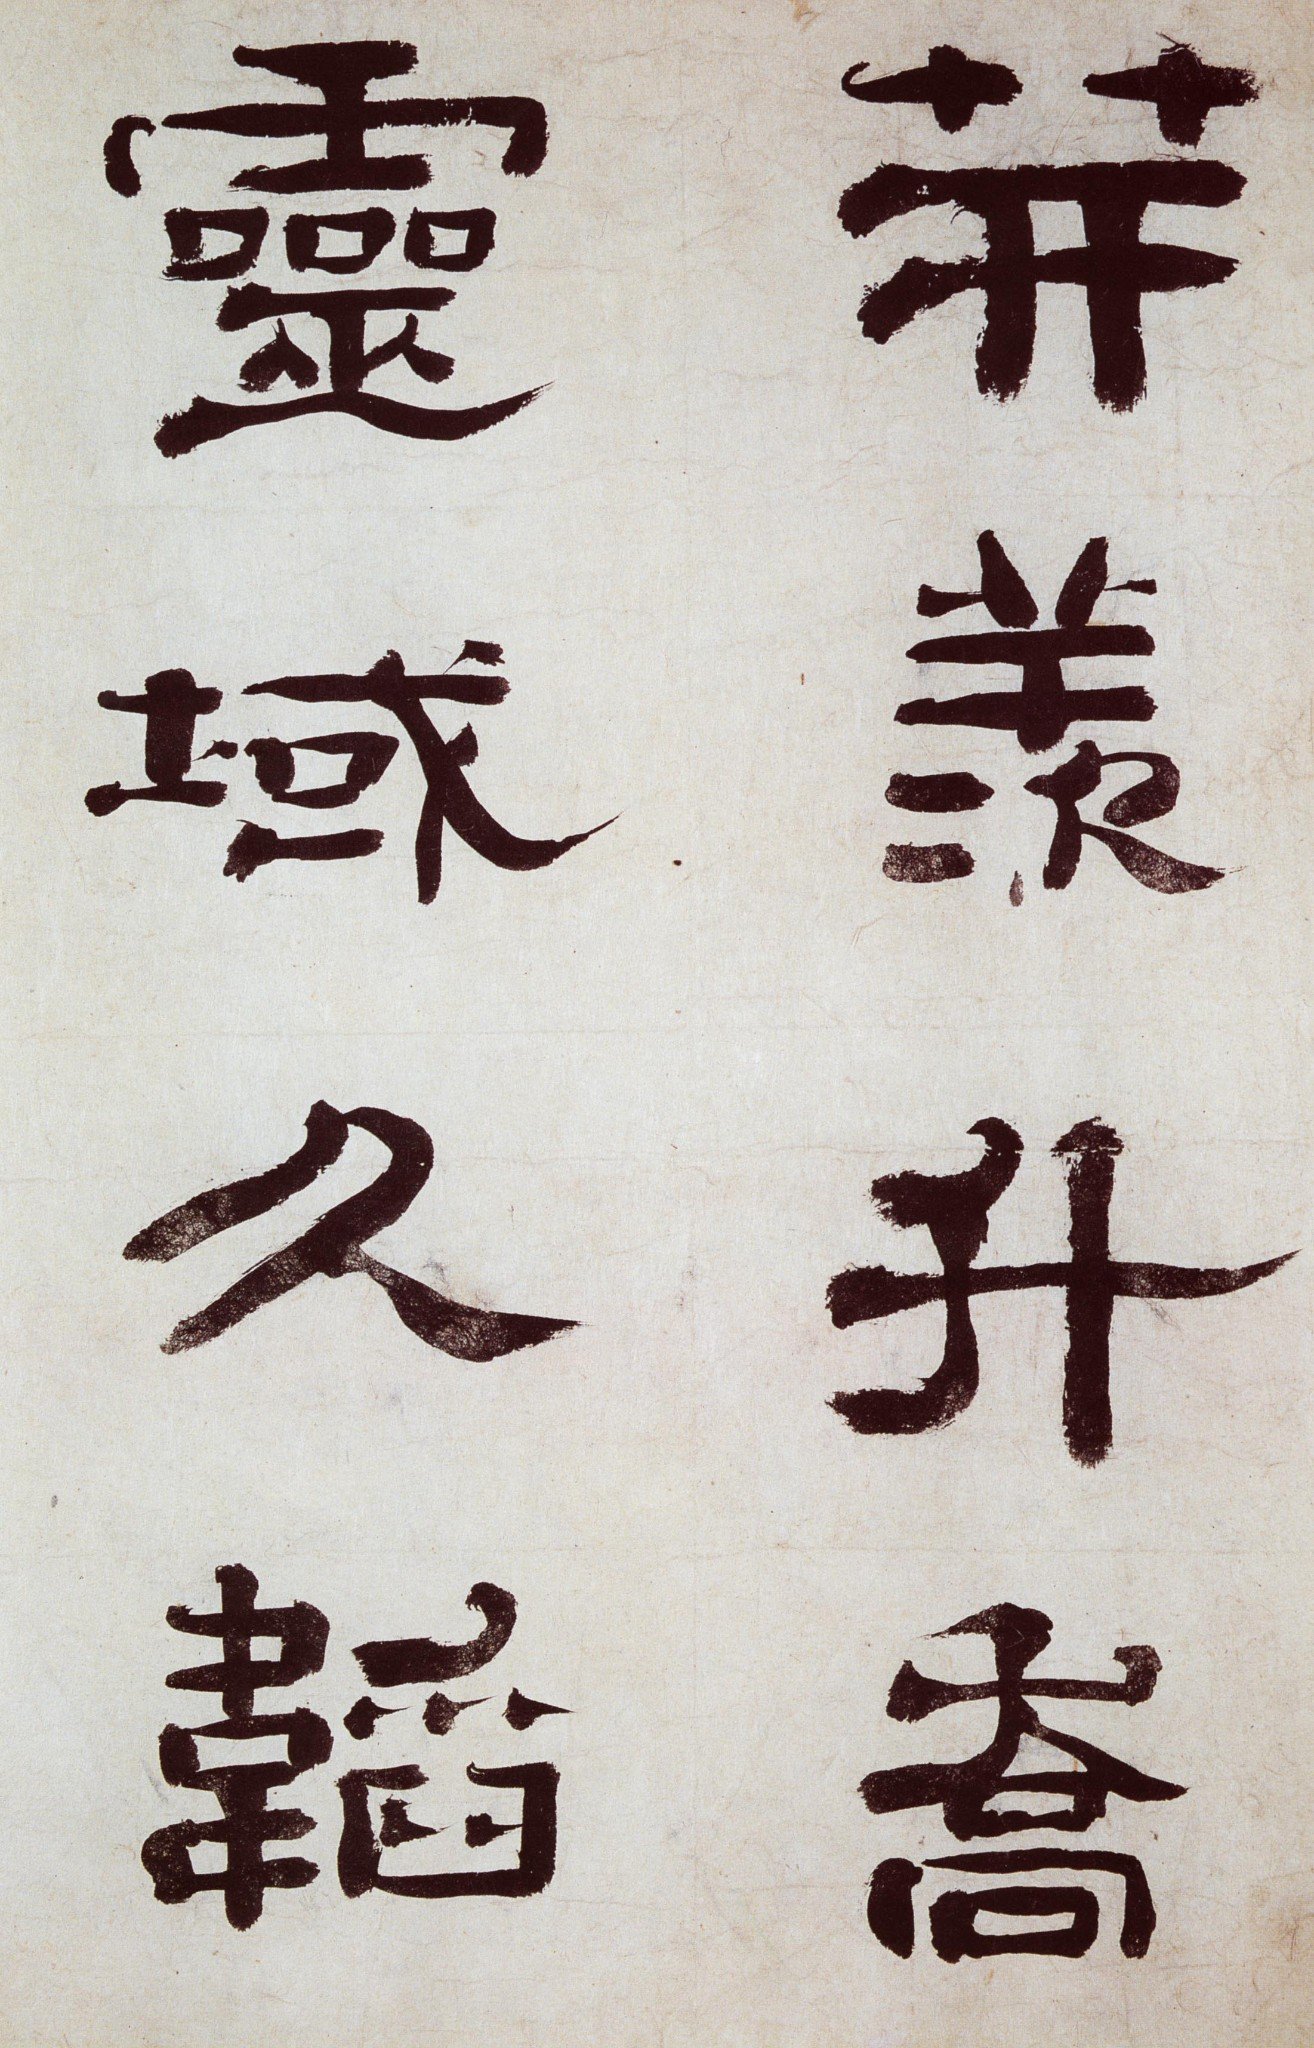 茾羨升喬
靈域久韜